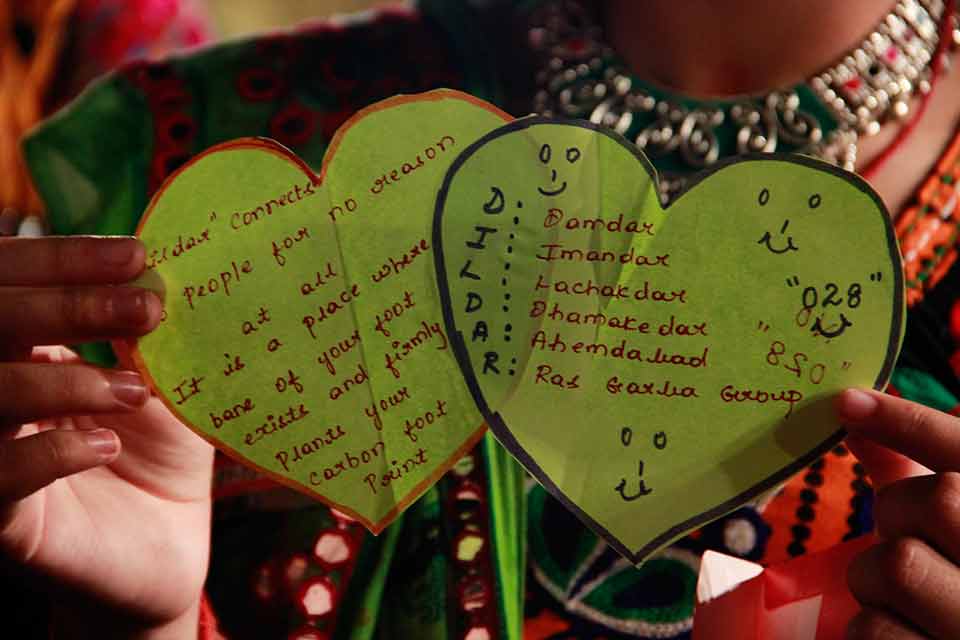 ildar" connects
people for no reason
at all
It is a place where
bane of your foot
exists and firmly
plants your
carbon foot
Point
D : Damdar
I : Imandar
L : Lachakdar
D : Dhamakedar
A : Ahemdabad
R : Ras Garba Group
"028"